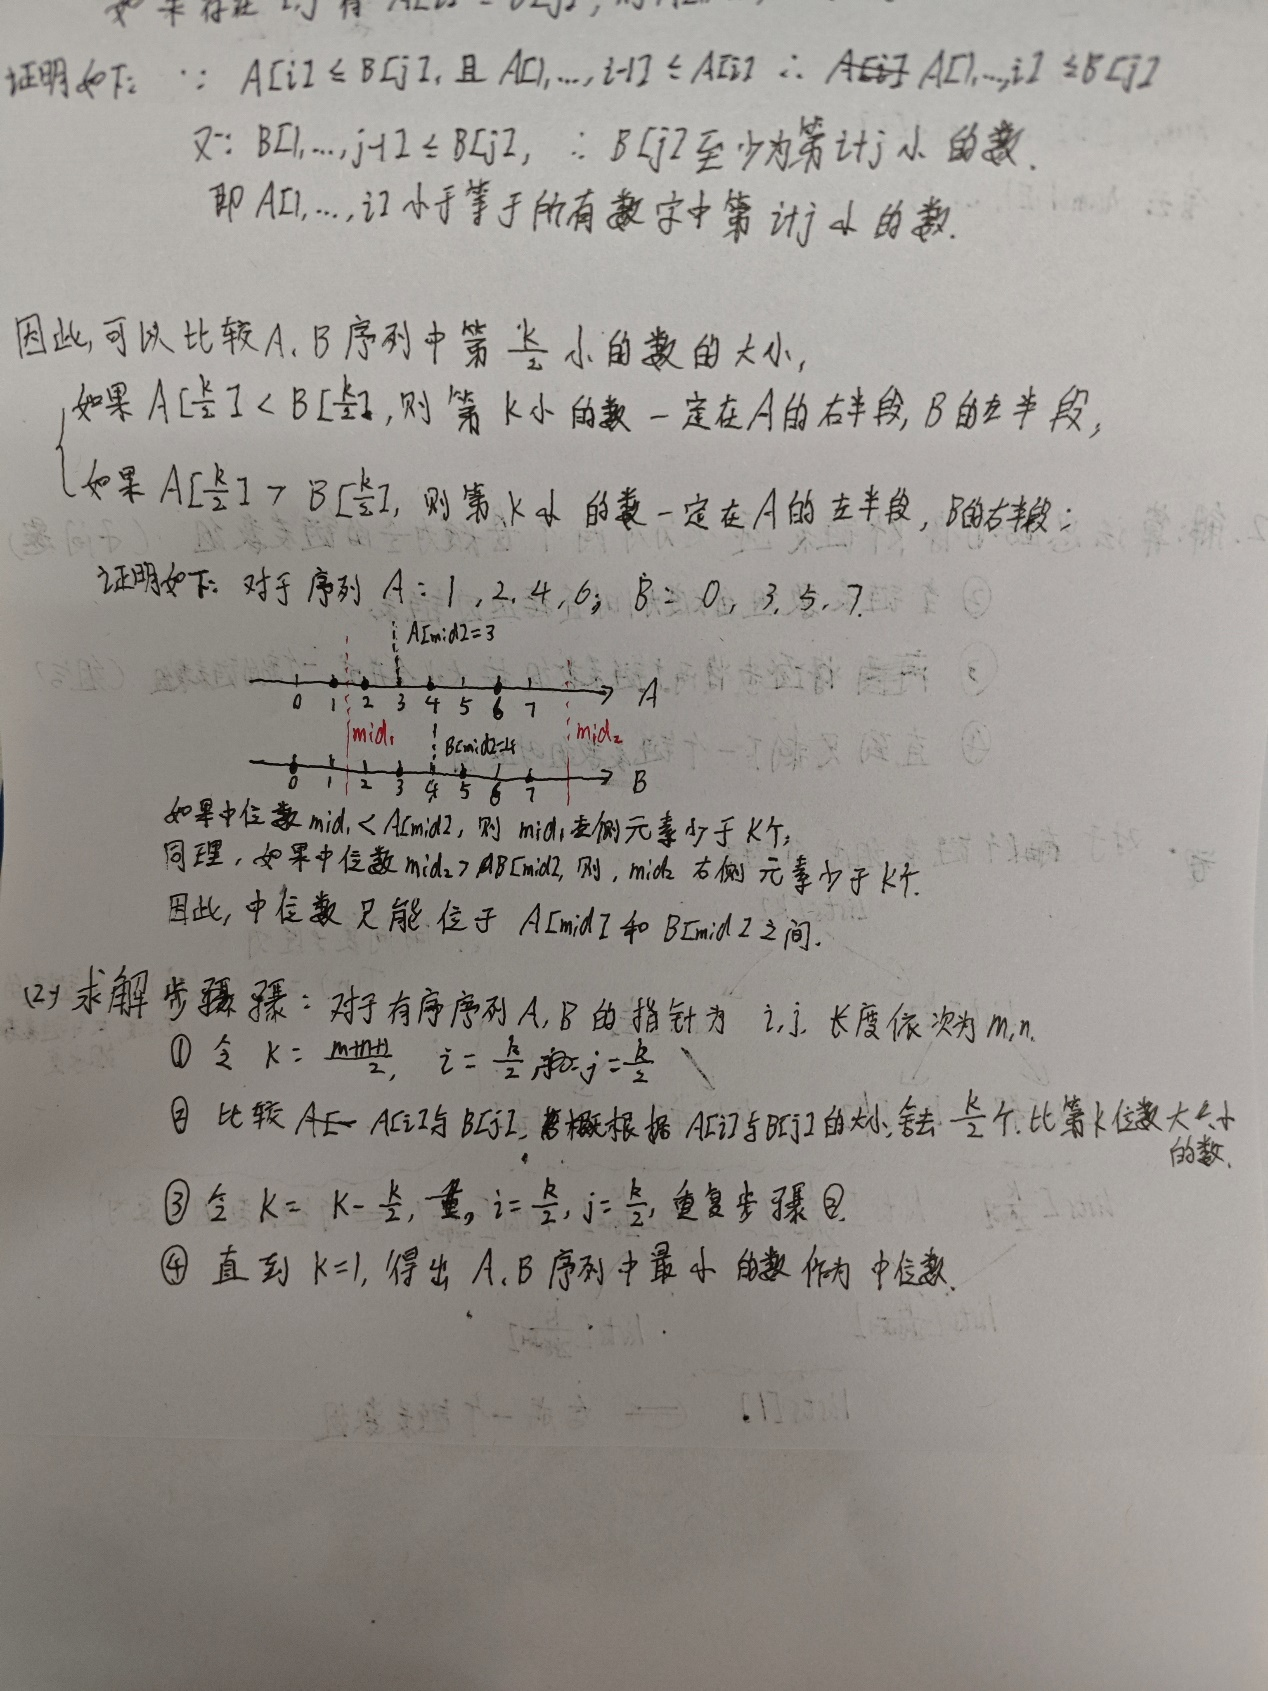 证明如下: ∵ A[i] ≤ B[j], 且 A[1,...,i-1] ≤ A[i] ∴ A[1,...,i] ≤ B[j]
又∵ B[1,...,j-1] ≤ B[j], ∴ B[j]至少为第i+j小的数.
即 A[1,...,i] 小于等于所有数字中第i+j小的数.
因此,可以比较A、B序列中第 k/2 小的数的大小,
如果 A[k/2] < B[k/2], 则第k小的数一定在A的右半段, B的左半段;
如果 A[k/2] > B[k/2], 则第k小的数一定在A的左半段, B的右半段;
证明如下: 对于序列 A: 1, 2, 4, 6; B: 0, 3, 5, 7.
A[mid]=3
0 1 2 3 4 5 6 7 A
mid₁ B[mid]=4 mid₂
0 1 2 3 4 5 6 7 B
如果中位数mid₁ < A[mid], 则mid₁左侧元素少于k个;
同理,如果中位数mid₂ > B[mid], 则, mid₂右侧元素少于k个.
因此,中位数只能位于 A[mid] 和 B[mid] 之间.
(2) 求解步骤骤: 对于有序序列A, B的指针为 i, j. 长度依次为m, n.
① 令 k = (m+n+1)/2, i = k/2, j = k/2
② 比较 A[i]与B[j], 根据A[i]与B[j]的大小,舍去 k/2 个.比第k位数小的数.
③ 令 k = k - k/2, i = k/2, j = k/2, 重复步骤②.
④ 直到 k=1, 得出 A、B序列中最小的数作为中位数.